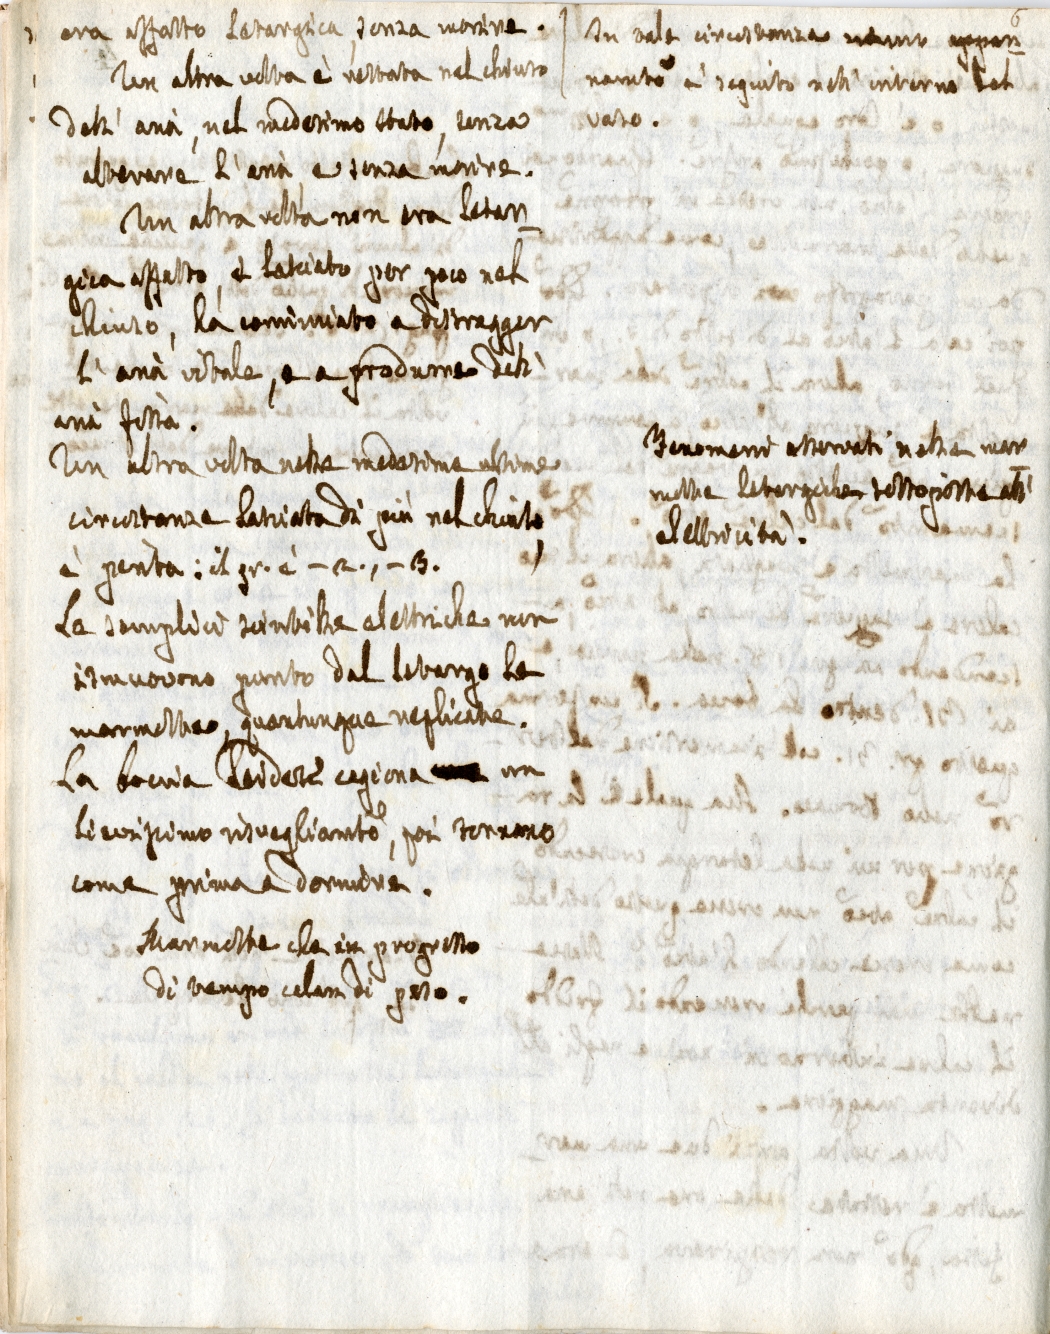 era affatto letargica, senza morire.
Un altra volta è restata nel chiuso
dell' aria, nel medesimo stato, senza
alterare l'aria, e senza morire.
Un altra volta non era letar=
gica affatto, e lasciato per poco nel
chiuso, ha cominciato a distruggere
l' aria vitale, e a produrre dell'
aria fissa.
Un altra volta nelle medesime ultime
circostanze lasciata di più nel chiuso,
è perita: il gr. è - 2., - 3.
Le semplici scintille elettriche non
ismuovono punto dal letargo le
marmotte, quantunque replicate.
La boccia Leidese cagiona un
lievissimo risvegliamto, poi tornano
come prima a dormire.
Marmotte che in progresso
di tempo calan di peso.
6
In tale circostanza niuno appan=
namto è seguito nell' interno del
vaso.
Fenomeni osservati nelle mar=
motte letargiche sottoposte all'
elettricità.